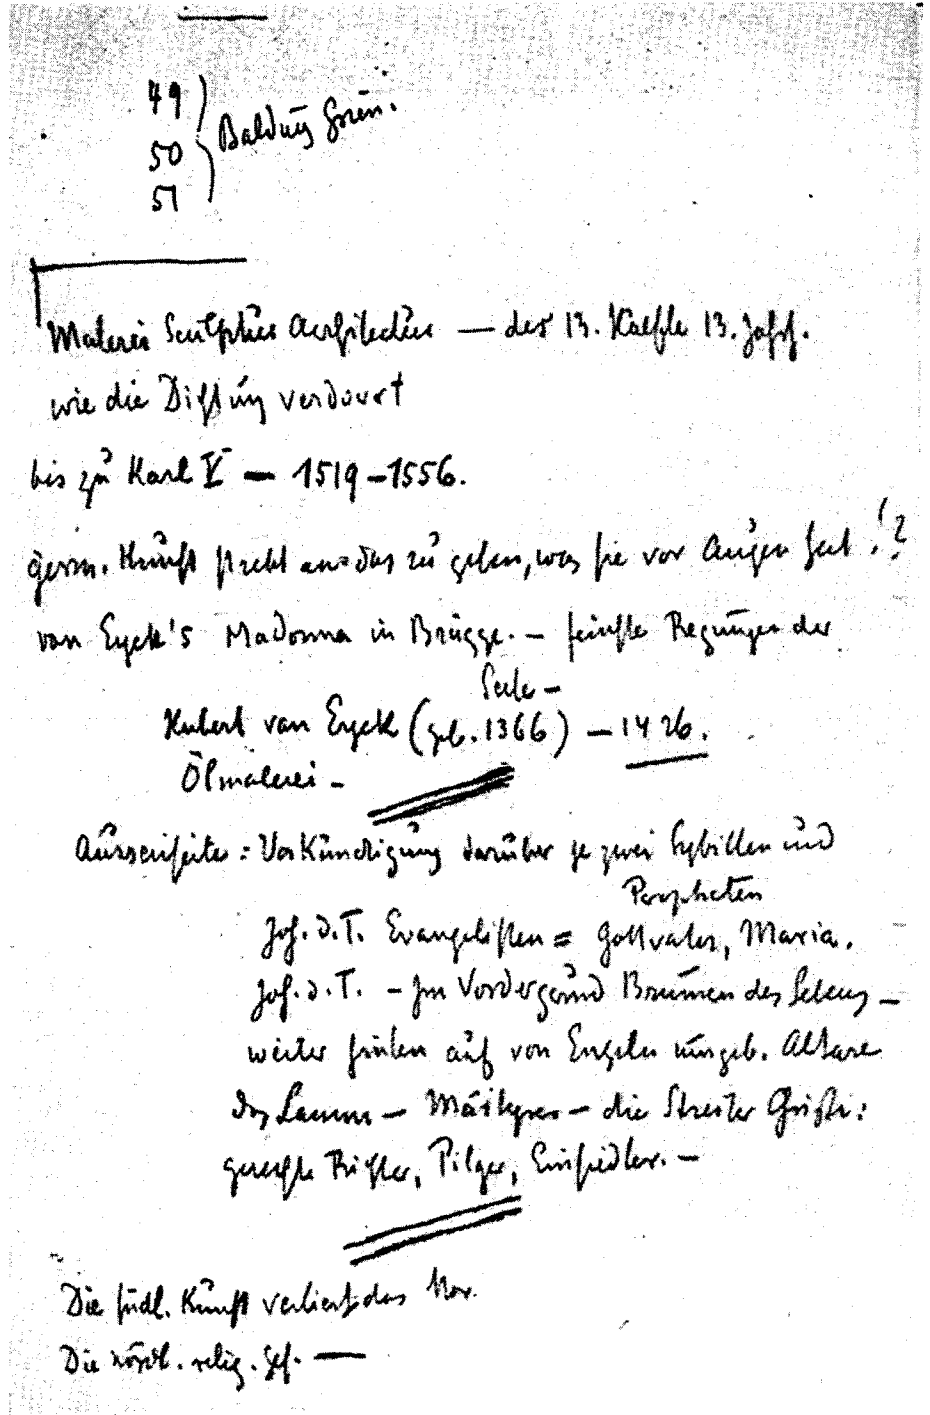 49
50 Baldung Grien.
51
Malerei Sculptur Architektur — der 13. Hälfte 13. Jahrh.
wie die Dichtung verdorrt
bis zu Karl V — 1519–1556.
germ. Kunst strebt an = das zu geben, was sie vor Augen hat !?
van Eyck's Madonna in Brügge. – feinste Regungen der
Seele –
Hubert van Eyck (geb. 1366) – 1426.
Ölmalerei –
Aussenseite: Verkündigung darüber je zwei Sybillen und
Propheten
Joh. d. T. Evangelisten = Gottvater, Maria.
Joh. d. T. – Im Vordergrund Brunnen des Lebens –
weiter hinten auf von Engeln umgeb. Altare
das Lamm – Märtyrer – die Streiter Christi:
gerechte Richter, Pilger, Einsiedler. –
Die südl. Kunst verliert das Mor.
Die nördl. relig. Gef. —